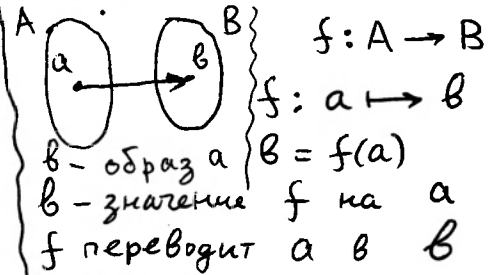 A B
a в
f : A → B
f : a ↦ в
в - образ a
в = f(a)
в - значение f на a
f переводит a в в